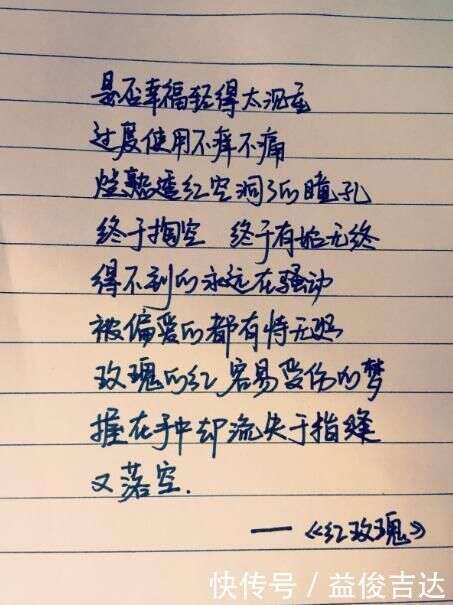 是否幸福轻得太沉重
过度使用不痒不痛
烂熟透红空洞了的瞳孔
终于掏空 终于有始无终
得不到的永远在骚动
被偏爱的都有恃无恐
玫瑰的红 容易受伤的梦
握在手中却流失于指缝
又落空.
——《红玫瑰》
快传号 / 益俊吉达